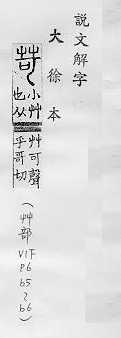 説文解字
大徐本
苛
小艸也从艸可聲乎哥切
(艸部 VI下 P6 b5~b6)